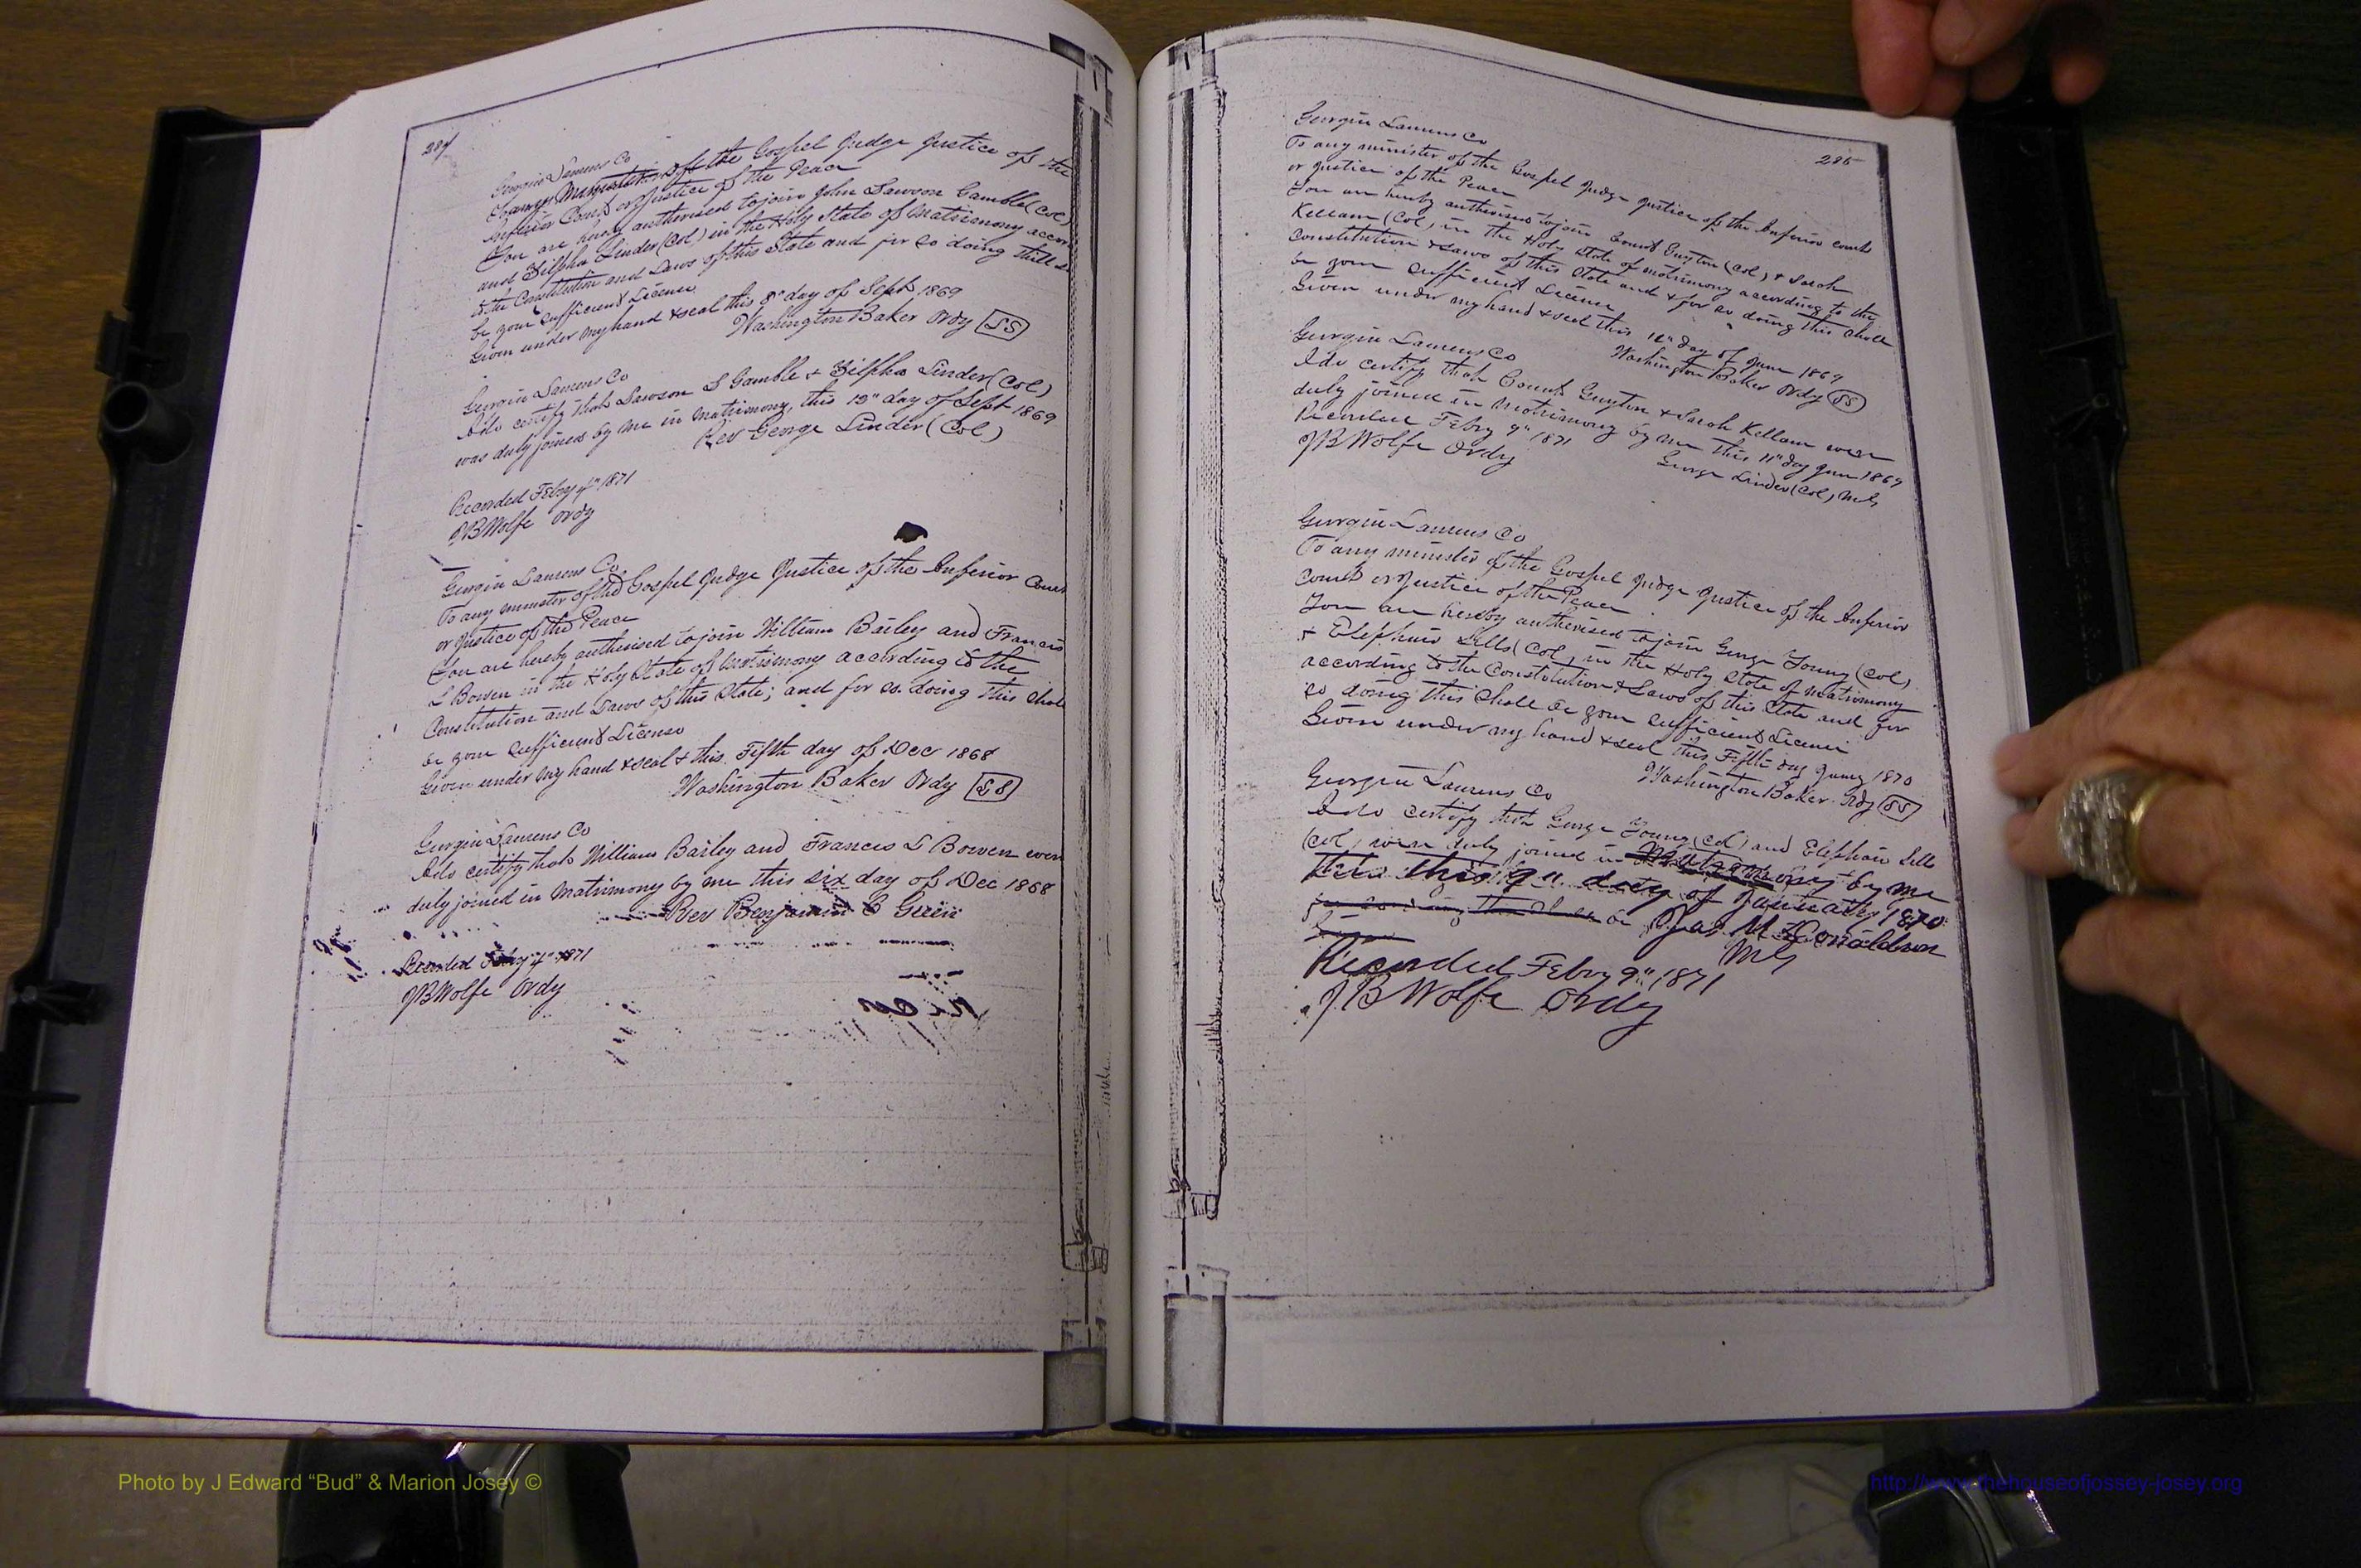 284
Georgia Laurens Co
of the Gospel Judge Justice of the
Inferior Court or Justice of the Peace
You are hereby authorised to join John Lawson Gamble (Col)
and Zilpha Linder (Col) in the Holy State of Matrimony accor
to the Constitution and Laws of this State and for so doing this
be your sufficient License
Given under my hand & seal this 8" day of Sept 1869
Washington Baker Ordy SS
Georgia Laurens Co
I do certify that Lawson S Gamble & Zilpha Linder (Col)
was duly joined by me in matrimony, this 12" day of Sept 1869
Rev George Linder (Col)
Recorded Febry 4" 1871
JB Wolfe Ordy
Georgia Laurens Co
To any minister of the Gospel Judge Justice of the Inferior Court
or Justice of the Peace
You are hereby authorised to join William Barley and Francis
L Bowen in the Holy State of Matrimony according to the
Constitution and Laws of this State; and for so doing this shall
be your sufficient License
Given under my hand & seal & this Fifth day of Dec 1868
Washington Baker Ordy SS
Georgia Laurens Co
I do certify that William Barley and Francis L Bowen were
duly joined in Matrimony by me this six day of Dec 1868
Rev Benjamin C Green
Recorded Febry 4" 1871
JB Wolfe Ordy
285
Georgia Laurens Co
To any minister of the Gospel Judge Justice of the Inferior court
or Justice of the Peace
You are hereby authorised to join Count Guyton (Col) & Sarah
Kellam (Col) in the Holy State of matrimony according to the
Constitution & Laws of this State and & for so doing this shall
be your sufficient License
Given under my hand & seal this 11" day of June 1869
Washington Baker Ordy SS
Georgia Laurens Co
I do certify that Count Guyton & Sarah Kellam were
duly joined in Matrimony by me this 11" day June 1869
George Linder (Col) MG
Recorded Febry 9" 1871
JB Wolfe Ordy
Georgia Laurens Co
To any minister of the Gospel Judge Justice of the Inferior
Court or Justice of the Peace
You are hereby authorised to join George Young (Col)
& Elephair Sells (Col) in the Holy State of Matrimony
according to the Constitution & Laws of this State and for
so doing this shall be your sufficient License
Given under my hand & seal this Fifth day Jany 1870
Washington Baker Ordy SS
Georgia Laurens Co
I do certify that George Young (Col) and Elephair Sells
(Col) were duly joined in Matrimony by me
this 9" day of January 1870
Jas. M Donaldson
MG
Recorded Febry 9" 1871
JB Wolfe Ordy
Photo by J Edward “Bud” & Marion Josey ©
http://www.thehouseofjossey-josey.org